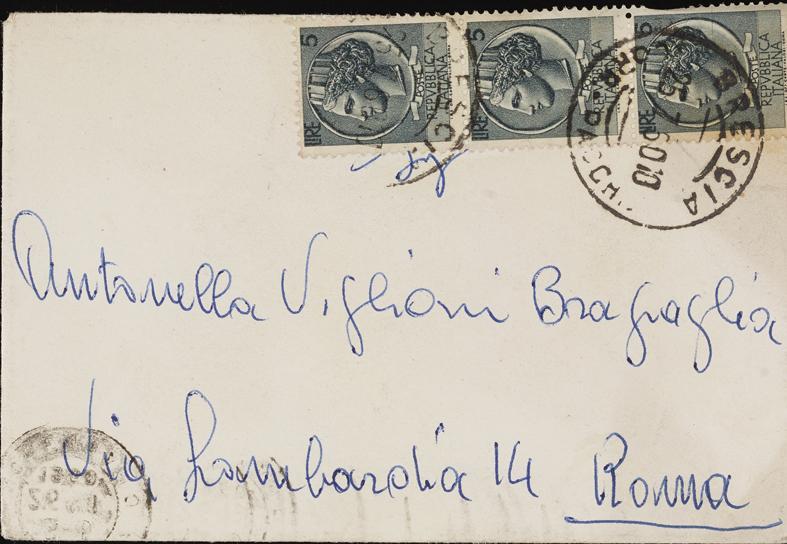 5 LIRE POSTE REPVBBLICA ITALIANA
5 LIRE POSTE REPVBBLICA ITALIANA
5 LIRE POSTE REPVBBLICA ITALIANA
BRESCIA
Antonella Viglioni Bragaglia
Via Lombardia 14 Roma